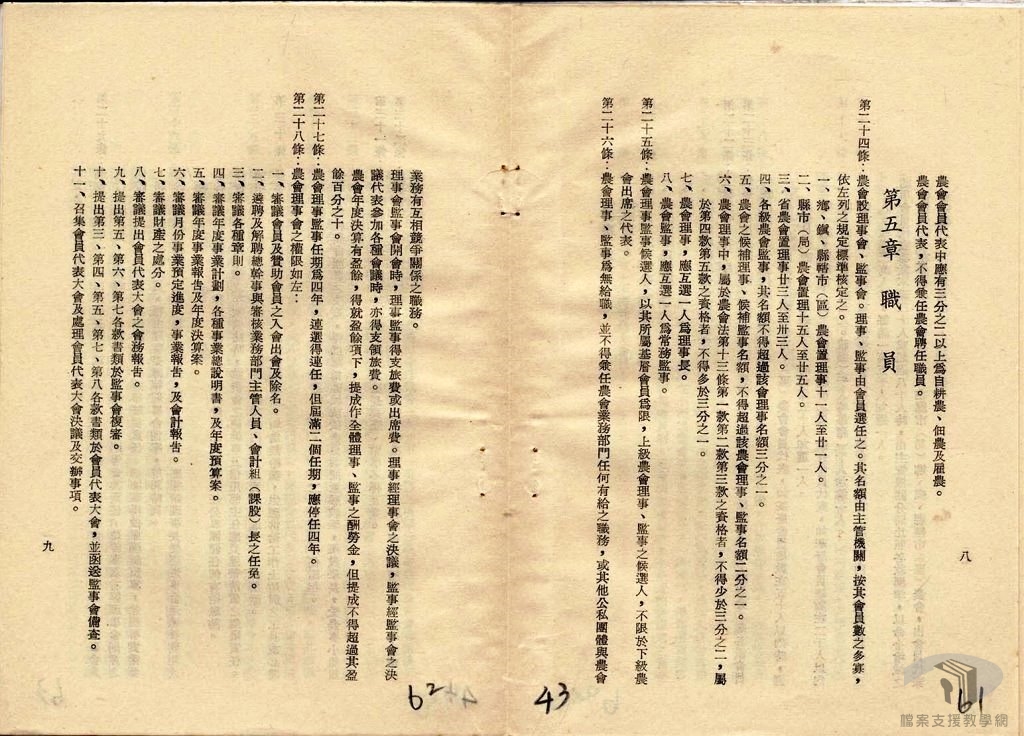 農會會員代表中應有三分之二以上爲自耕農、佃農及雇農。
農會會員代表,不得兼任農會聘任職員。
第五章 職員
第二十四條:農會設理事會、監事會。理事、監事由會員選任之。其名額由主管機關,按其會員數之多寡,
依左列之規定標準核定之。
一、鄉、鎮、縣轄市(區)農會置理事十一人至廿一人。
二、縣市(局)農會置理十五人至廿五人。
三、省農會置理事廿三人至卅三人。
四、各級農會監事,其名額不得超過該會理事名額三分之一。
五、農會之候補理事、候補監事名額,不得超過該農會理事、監事名額二分之一。
六、農會理事中,屬於農會法第十三條第一款第二款第三款之資格者,不得少於三分之二,屬
於第四款第五款之資格者,不得多於三分之一。
七、農會理事,應互選一人爲理事長。
八、農會監事,應互選一人爲常務監事。
第二十五條:農會理事監事候選人,以其所屬基層會員爲限,上級農會理事、監事之候選人,不限於下級農
會出席之代表。
第二十六條:農會理事、監事爲無給職,並不得兼任農會業務部門任何有給之職務,或其他公私團體與農會
八
61
43
業務有互相競爭關係之職務。
理事會監事會開會時,理事監事得支旅費或出席費。理事經理事會之決議,監事經監事會之決
議代表參加各種會議時,亦得支領旅費。
農會年度決算有盈餘,得就盈餘項下,提成作全體理事、監事之酬勞金,但提成不得超過其盈
餘百分之十。
第二十七條:農會理事監事任期爲四年,連選得連任,但屆滿二個任期,應停任四年。
第二十八條:農會理事會之權限如左:
一、審議會員及贊助會員之入會出會及除名。
二、遴聘及解聘總幹事與審核業務部門主管人員、會計組(課股)長之任免。
三、審議各種章則。
四、審議年度事業計劃,各種事業總說明書,及年度預算案。
五、審議年度事業報告及年度決算案。
六、審議月份事業預定進度,事業報告,及會計報告。
七、審議財產之處分。
八、審議提出會員代表大會之會務報告。
九、提出第五、第六、第七各款書類於監事會複審。
十、提出第三、第四、第五、第七、第八各款書類於會員代表大會,並函送監事會備查。
十一、召集會員代表大會及處理會員代表大會決議及交辦事項。
九
62
檔案支援教學網